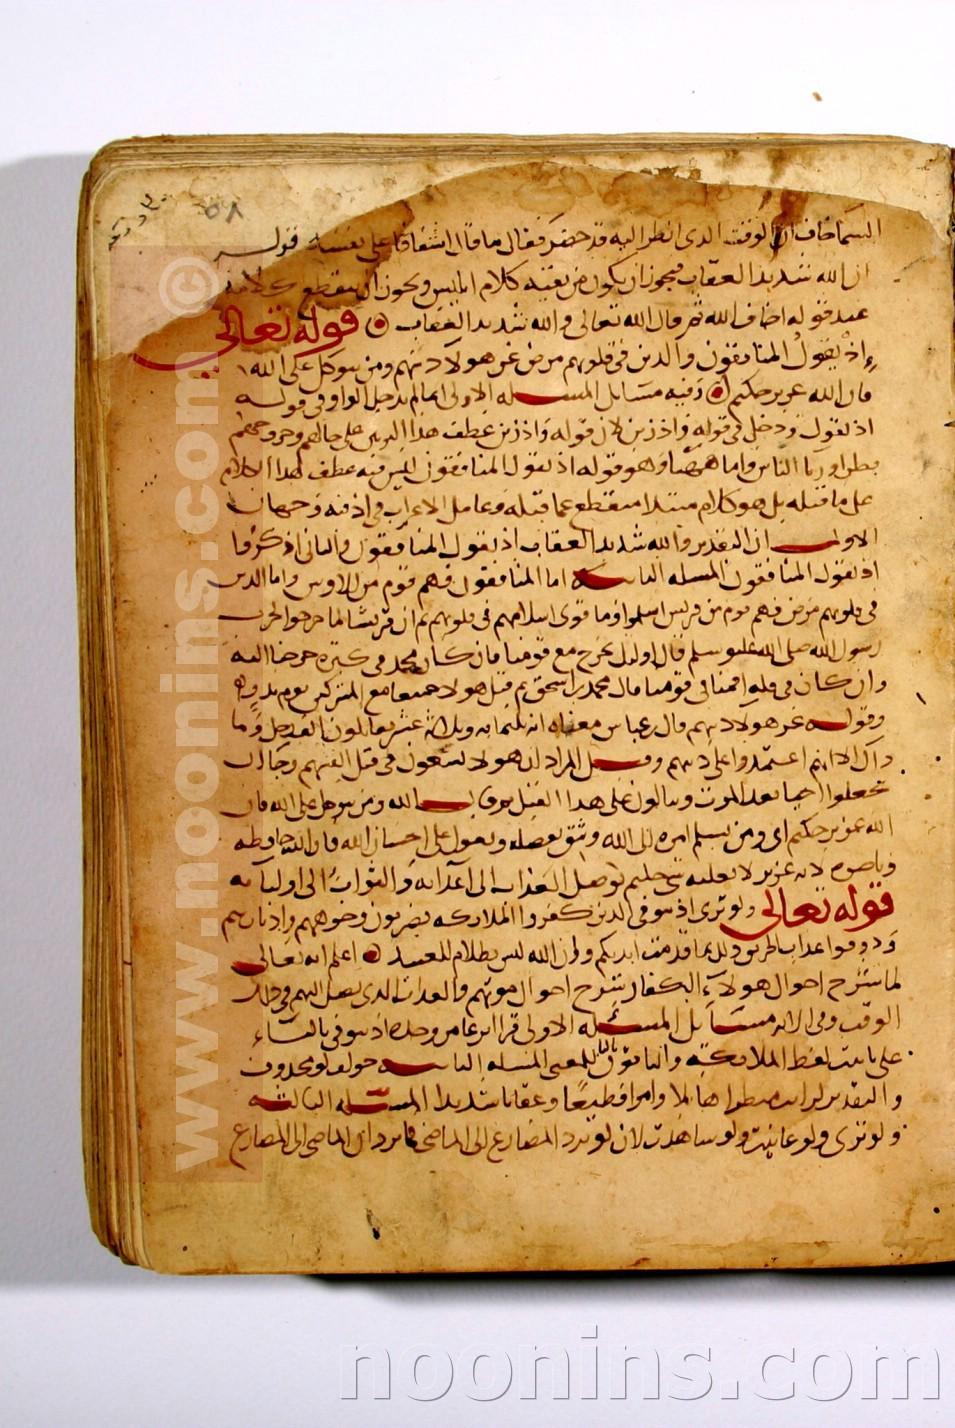 السماخاف ان الوقت الذى انظر اليه قد حضر فقال ما قال اشفاقا على نفسه قوله
ان الله شديد العقاب فيجوز ان يكون من بقية كلام ابليس ويجوز ان ينقطع كلامه
عند قوله اخاف الله ثم قال الله تعالى والله شديد العقاب قوله تعالى
اذ يقول المنافقون والذين فى قلوبهم مرض غر هولاء دينهم ومن يتوكل على الله
فان الله عزيز حكيم وفيه مسايل المسله الاولى انما لم يدخل الواو فى قوله
اذ يقول ودخل فى قوله واذ زين لان قوله واذ زين عطف هذا التزيين على حالهم وخروجهم
بطرا وريا الناس واما ههنا وهو قوله اذ يقول المنافقون فليس فيه عطف لهذا الكلام
على ما قبله بل هو كلام مبتدا منقطع عما قبله وعامل الاعراب فى اذ فيه وجهان
الاول ان التقدير والله شديد العقاب اذ يقول المنافقون والثانى اذكروا
اذ يقول المنافقون المسله الثانيه اما المنافقون فهم قوم من الاوس واما الذين
فى قلوبهم مرض فهم قوم من قريش اسلموا وما قوى اسلامهم فى قلوبهم ثم ان قريشا لما خرجوا لحرب
رسول الله صلى الله عليه وسلم قال اوليك نخرج مع قومنا فان كان محمد فى كثرة خرجنا اليه
وان كان فى قله اقمنا فى قومنا قال محمد بن اسحق ثم قتل هولاء جميعا مع المشركين يوم بدر
وقوله غر هولاء دينهم قال ابن عباس معناه انه ثلثمايه وثلاثه عشر يقاتلون الف رجل وما
ذاك الا انهم اعتمدوا على دينهم وقيل المراد ان هولاء يسعون فى قتل انفسهم رجا ان
يجعلوا احيا بعد الموت ويثابون على هذا القتل ثم قال الله ومن يتوكل على الله فان
الله عزيز حكيم اى ومن يسلم امره الى الله ويثق بفضله ويعول على احسان الله فان الله حافظه
وناصره لانه عزيز لا يغلبه شى حكيم يوصل العذاب الى اعدائه والثواب الى اوليائه
قوله تعالى ولو ترى اذ يتوفى الذين كفروا الملايكه يضربون وجوههم وادبارهم
وذوقوا عذاب الحريق ذلك بما قدمت ايديكم وان الله ليس بظلام للعبيد اعلم انه تعالى
لما شرح احوال هولاء الكفار شرح احوال موتهم والعذاب الذى يصل اليهم فى ذلك
الوقت وفى الايه مسائل المسئله الاولى قرا ابن عامر وحده اذ يتوفى بالتاء
على تانيث لفظ الملايكة والباقون باليا للمعنى المسله الثانيه جواب لو محذوف
والتقدير لرايت منظرا هايلا وامرا فظيعا وعقابا شديدا المسئله الثالثه
ولو ترى ولو عاينت ولو شاهدت لان لو ترد المضارع الى الماضى كما ترد ان الماضى الى المضارع
٥٨
www.noonins.com ©
noonins.com